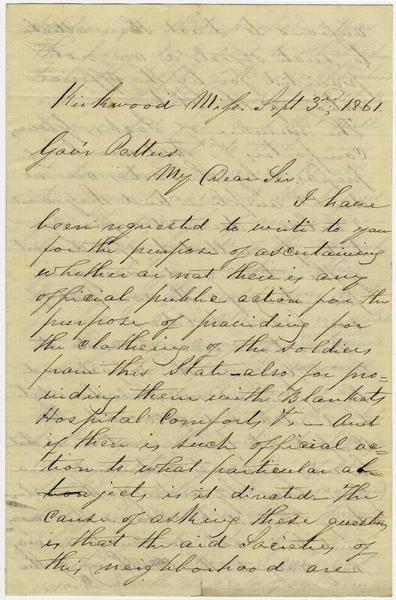 Kirkwood Miss. Sept 3rd, 1861.
Gov'r Pettus.
My Dear Sir
I have
been requested to write to you
for the purpose of ascertaining
whether or not there is any
official public action for the
purpose of providing for
the clothing of the soldiers
from this State—also for pro=
viding them with Blankets
Hospital Comforts &c— And
if there is such official ac=
tion to what particular ob-
jects is it directed— The
cause of asking these questions
is that the aid Societies of
this neighborhood are